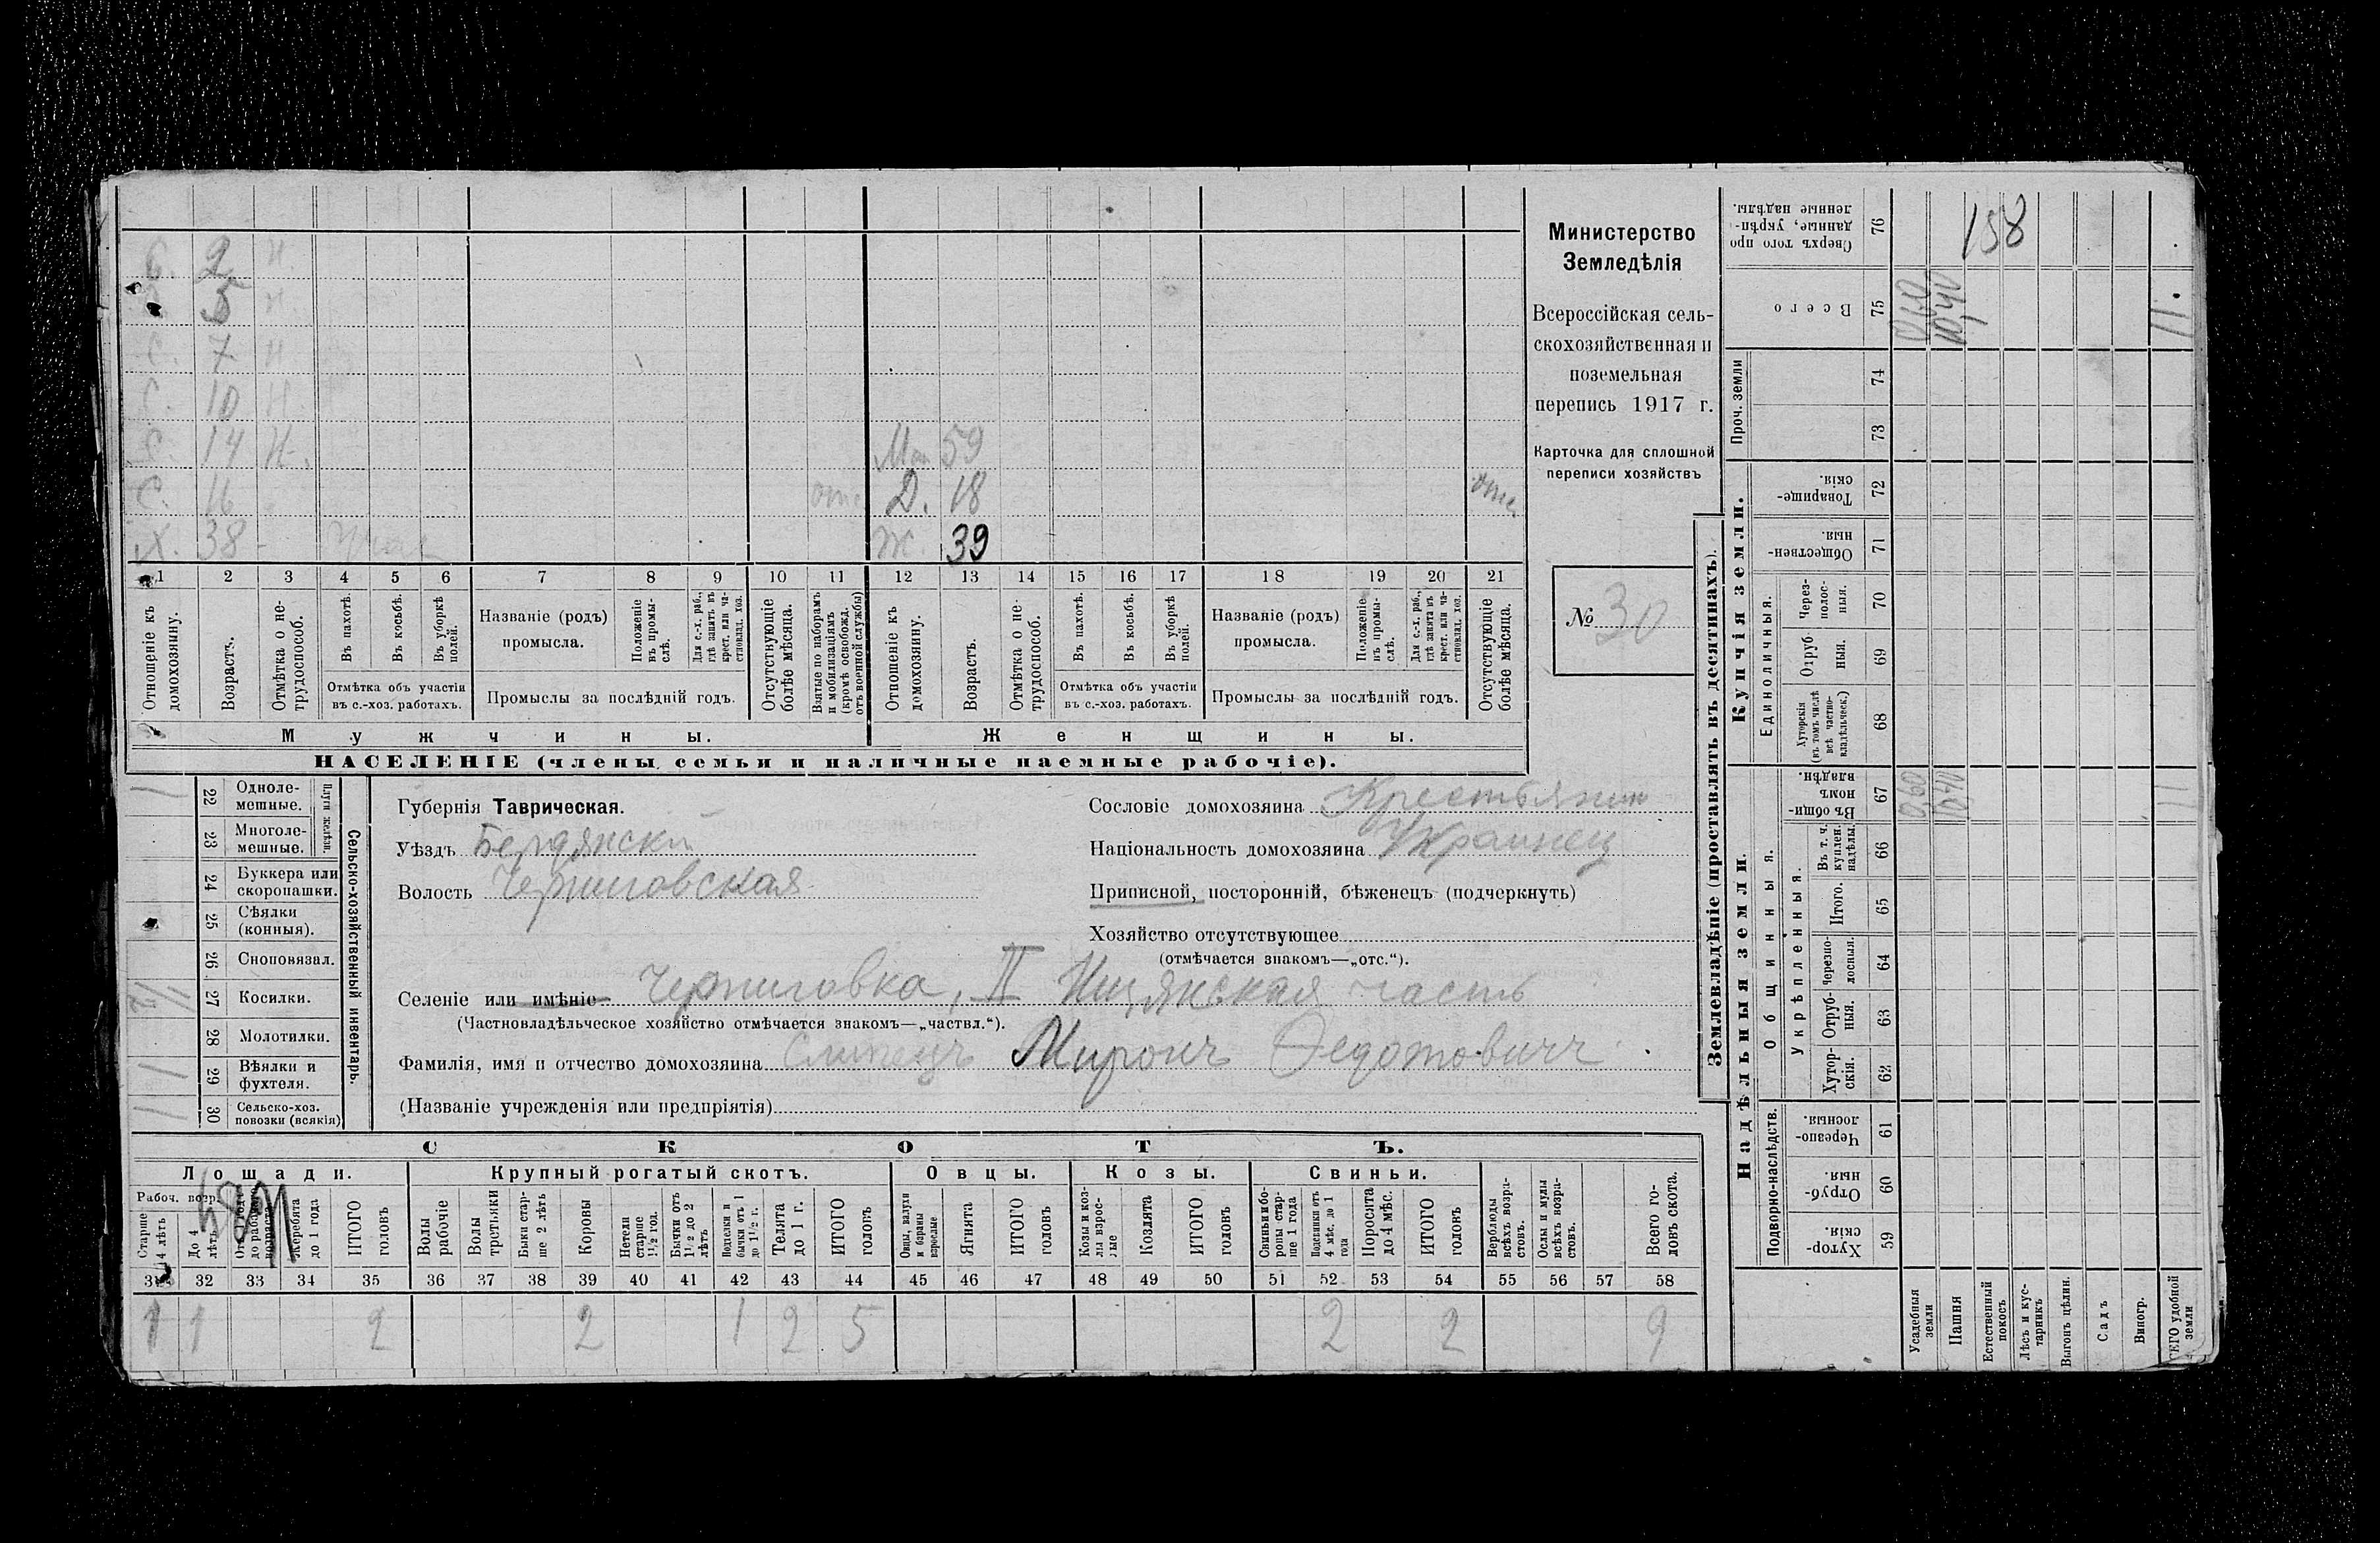 С. 2 Н.
5 Н.
С. 7 Н
С. 10 Н.
С. 14 Н.
Ма 59
С. 16 отс Д. 18 отс.
Х. 38 Ж. 39
1 2 3 4 5 6 7 8 9 10 11 12 13 14 15 16 17 18 19 20 21
Отношеніе къ домохозяину.
Возрастъ.
Отмѣтка о не-трудоспособ.
Въ пахотѣ.
Въ косьбѣ.
Въ уборкѣ полей.
Отмѣтка объ участіи
въ с.-хоз. работахъ.
Названіе (родъ)
промысла.
Положеніе въ промы-слѣ.
Для с.-х. раб., гдѣ занятъ въ крест. или ча-стновлад. хоз.
Промыслы за послѣдній годъ.
Отсутствующіе болѣе мѣсяца.
Взятые по наборамъ и мобилизаціямъ (кромѣ освобожд. отъ военной службы)
Отношеніе къ домохозяину.
Возрастъ.
Отмѣтка о не-трудоспособ.
Въ пахотѣ.
Въ косьбѣ.
Въ уборкѣ полей.
Отмѣтка объ участіи
въ с.-хоз. работахъ.
Названіе (родъ)
промысла.
Положеніе въ промы-слѣ.
Для с.-х. раб., гдѣ занята въ крест. или ча-стновлад. хоз.
Промыслы за послѣдній годъ.
Отсутствующіе болѣе мѣсяца.
Мужчины. Женщины.
НАСЕЛЕНІЕ (члены семьи и наличные наемные рабочіе).
Министерство
Земледѣлія
Всероссійская сель-
скохозяйственная и
поземельная
перепись 1917 г.
Карточка для сплошной
переписи хозяйствъ
№ 30
1 22 Одноле-мешные.
23 Многоле-мешные.
Плуги желѣзн.
24 Буккера или скоропашки.
25 Сѣялки (конныя).
26 Сноповязал.
27 Косилки.
28 Молотилки.
1 29 Вѣялки и фухтеля.
1 30 Сельско-хоз. повозки (всякія)
Сельско-хозяйственный инвентарь.
Губернія Таврическая.
Уѣздъ Бердянскій
Волость Черниговская
Сословіе домохозяина Крестьянин
Національность домохозяина Украинец
Приписной, посторонній, бѣженецъ (подчеркнуть)
Хозяйство отсутствующее
(отмѣчается знакомъ—„отс.“).
Селеніе или имѣніе Черниговка, II часть
(Частновладѣльческое хозяйство отмѣчается знакомъ—„частвл.“).
Фамилія, имя и отчество домохозяина Слипецъ Миронъ Федотовичъ
(Названіе учрежденія или предпріятія)
СКОТЪ.
Лошади. Крупный рогатый скотъ. Овцы. Козы. Свиньи.
Рабоч. возр.
Старше 4 лѣтъ
До 4 лѣтъ
Жеребята до 1 года
ИТОГО головъ
Волы рабочіе
Волы третьяки
Быки стар-ше 2 лѣтъ
Коровы
Нетели старше 1½ год.
Бычки отъ 1½ до 2 лѣтъ
Подтелки и бычки отъ 1 до 1½ г.
Телята до 1 г.
ИТОГО головъ
Овцы, валухи и бараны взрослые
Ягнята
ИТОГО головъ
Козы и коз-лы взрос-лые
Козлята
ИТОГО головъ
Свиньи и бо-ровы стар-ше 1 года
Подсвинки отъ 4 мѣс. до 1 года
Поросята до 4 мѣс.
ИТОГО головъ
Верблюды всѣхъ возра-стовъ.
Ослы и мулы всѣхъ возра-стовъ.
Всего го-ловъ скота.
31 32 33 34 35 36 37 38 39 40 41 42 43 44 45 46 47 48 49 50 51 52 53 54 55 56 57 58
1 1 2 2 1 2 5 2 2 9
Землевладѣніе (проставлять въ десятинахъ).
Надѣльныя земли. Купчія земли. Проч. земли
Подворно-наслѣдств. Общинныя. Укрѣпленныя. Единоличныя.
Хутор-скія. 59
Отруб-ныя. 60
Черезпо-лосныя. 61
Хутор-скія. 62
Отруб-ныя. 63
Черезпо-лосныя. 64
Итого. 65
Въ т. ч. куплен. надѣлы. 66
Въ общин-номъ владѣн. 67
Хуторскія (въ томъ числѣ всѣ частно-владѣльческ.) 68
Отруб-ныя. 69
Через-полос-ныя. 70
Обществен-ныя. 71
Товарище-скія. 72
73
74
Всего 75
Сверхъ того про-данные, укрѣп-ленные надѣлы. 76
158
Усадебныя земли 0,60 0,60
Пашня 10,40 10,40
Естественный покосъ
Лѣсъ и кус-тарникъ
Выгонъ цѣлин.
Садъ
Виногр.
ВСЕГО удобной земли 11 11.